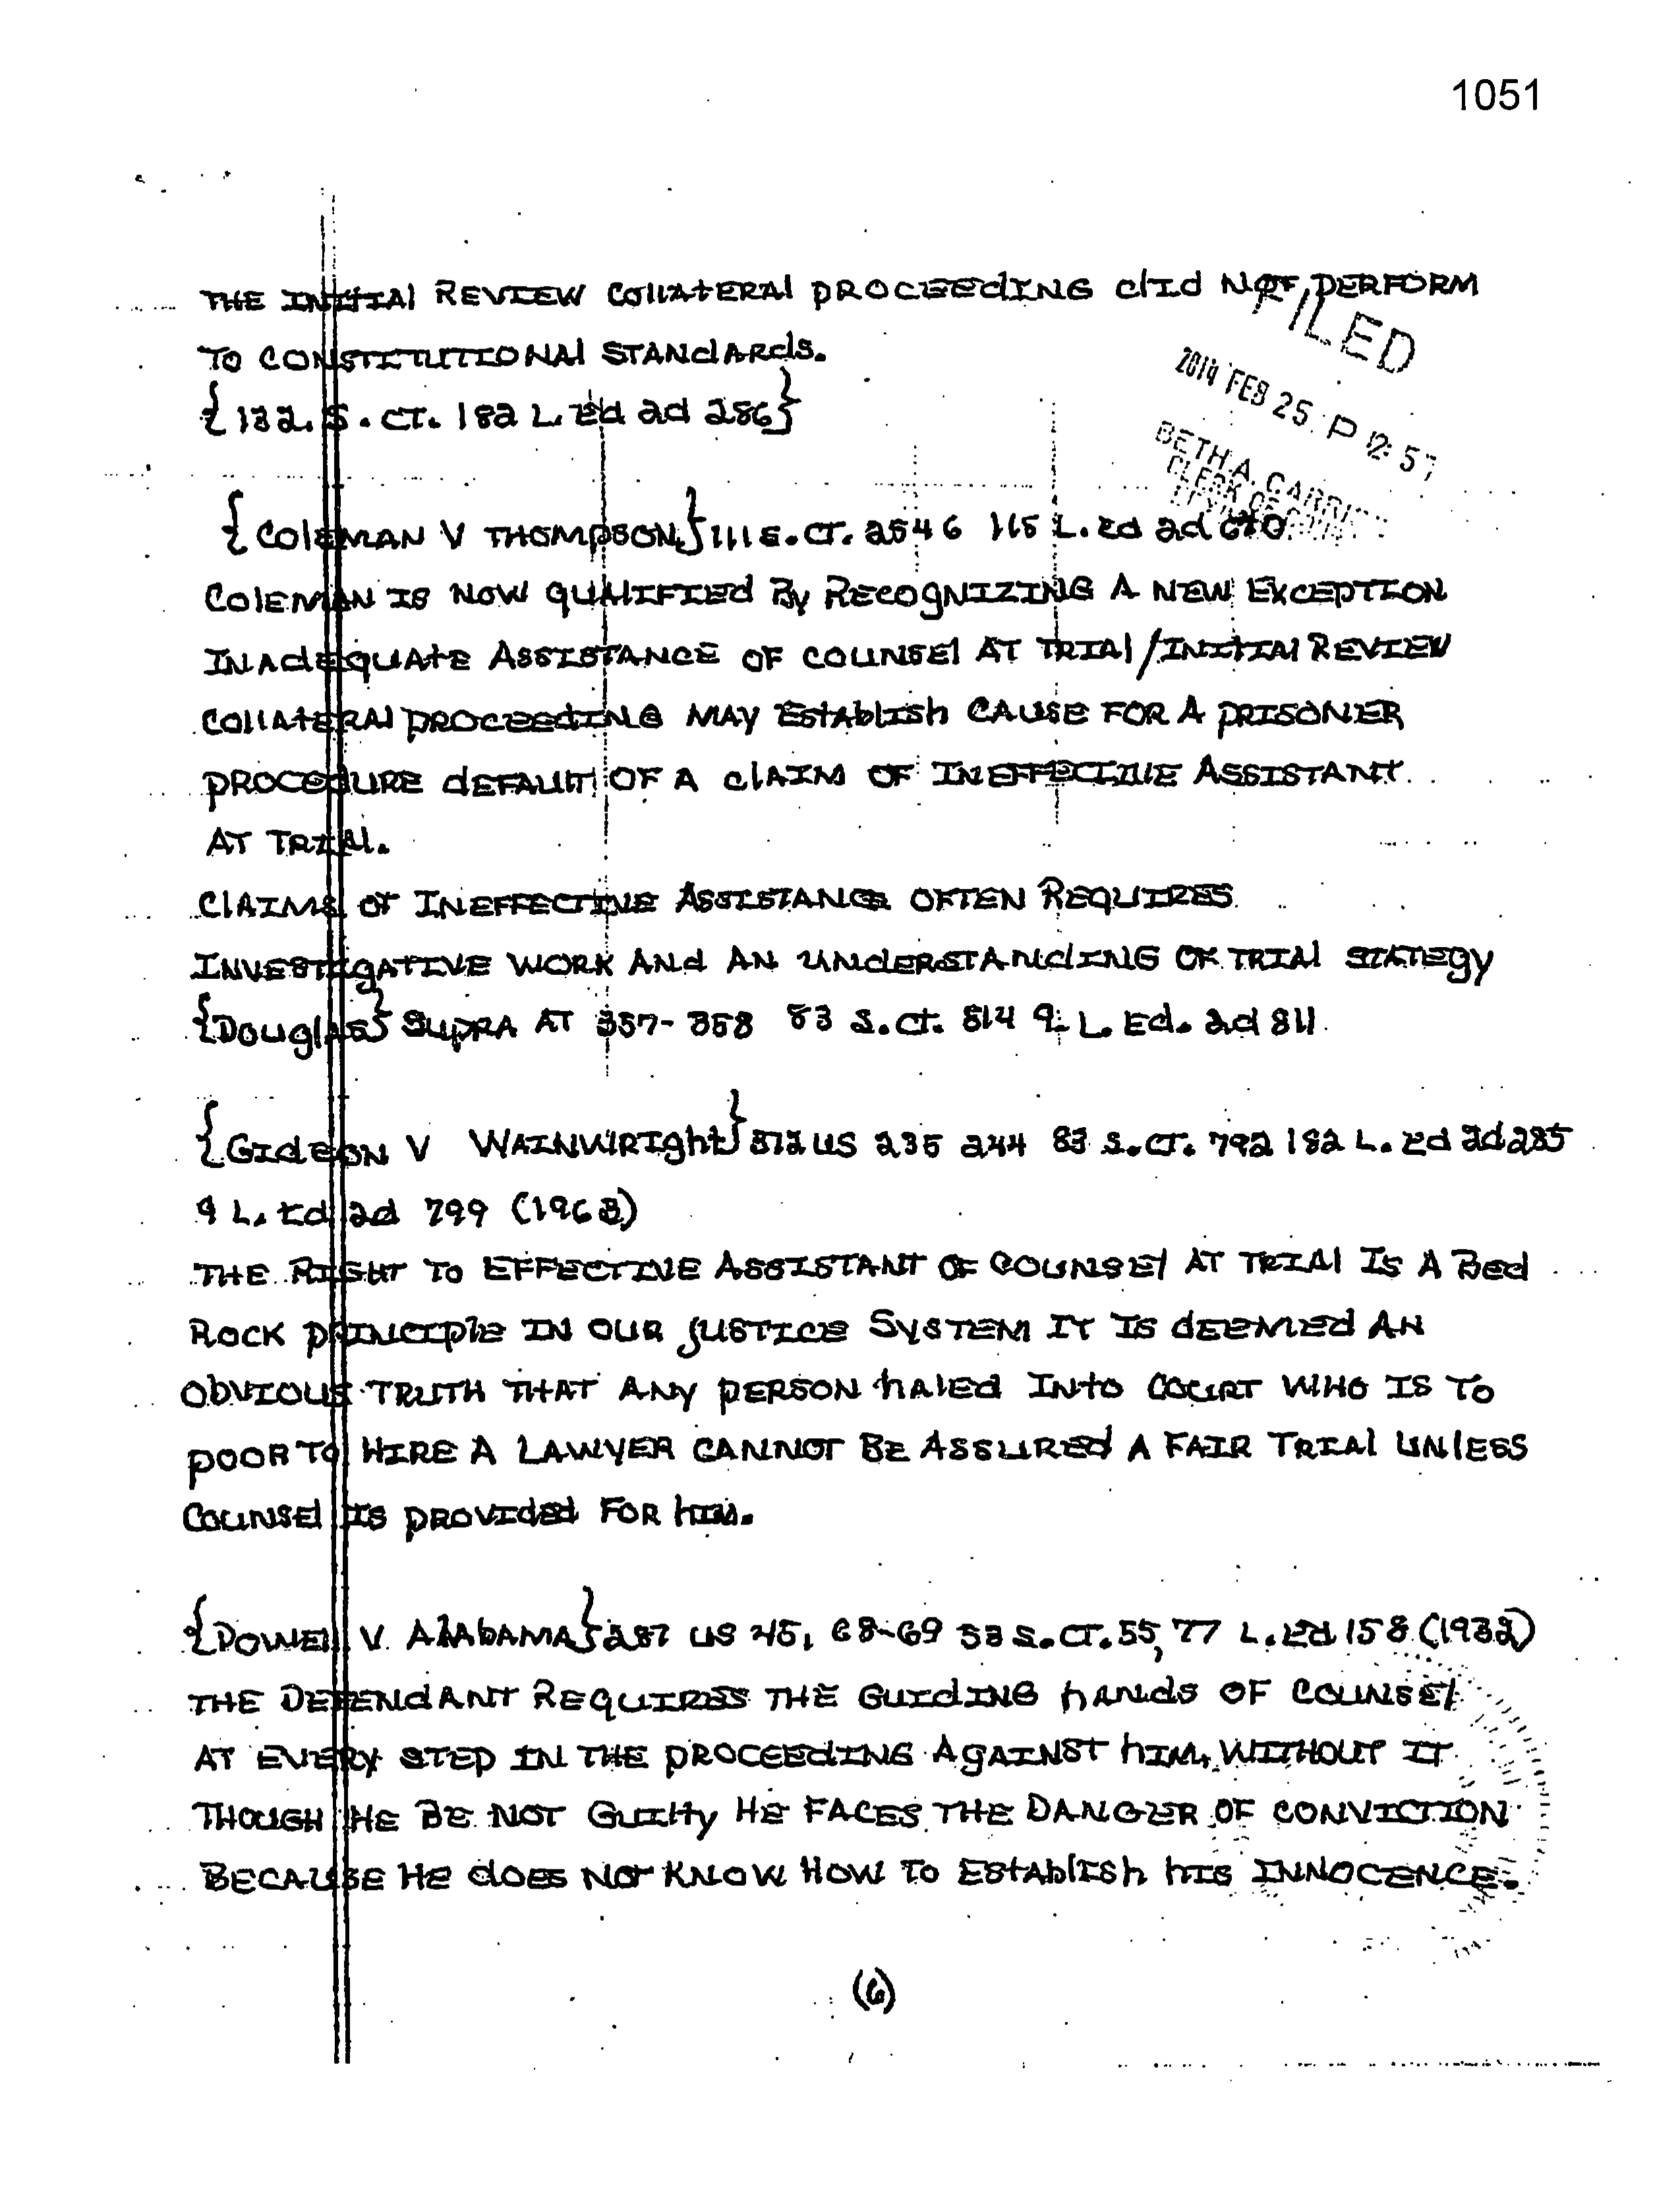 1051
THE INITIAL REVIEW COLLATERAL PROCEEDING DID NOT PERFORM
TO CONSTITUTIONAL STANDARDS.
{132. S. CT. 182 L. Ed 2d 286}
FILED
2014 FEB 25 P 12: 57
BETH A. CARRI
CLERK OF
{COLEMAN V THOMPSON,} 111 S. CT. 2546 115 L. Ed 2d 640
COLEMAN IS NOW QUALIFIED By RECOGNIZING A NEW EXCEPTION
INADEQUATE ASSISTANCE OF COUNSEL AT TRIAL/INITIAL REVIEW
COLLATERAL PROCEEDING MAY Establish CAUSE FOR A PRISONER
PROCEDURE DEFAULT OF A CLAIM OF INEFFECTIVE ASSISTANT
AT TRIAL.
CLAIMS OF INEFFECTIVE ASSISTANCE OFTEN REQUIRES
INVESTIGATIVE WORK AND AN UNDERSTANDING OF TRIAL STATEGY
{Douglas} SUPRA AT 357-358 83 S. Ct. 814 9 L. Ed. 2d 811
{GIDEON V WAINWRIGHT} 372 US 235 244 83 S. CT. 792 182 L. Ed 2d 285
9 L. Ed 2d 799 (1963)
THE RIGHT TO EFFECTIVE ASSISTANT OF COUNSEL AT TRIAL IS A BED
ROCK PRINCIPLE IN OUR JUSTICE SYSTEM IT IS DEEMED AN
OBVIOUS TRUTH THAT ANY PERSON HALED INTO COURT WHO IS TO
POOR TO HIRE A LAWYER CANNOT BE ASSURED A FAIR TRIAL UNLESS
COUNSEL IS PROVIDED FOR HIM.
{POWELL V. ALABAMA} 287 US 45, 68-69 53 S. CT. 55, 77 L. Ed 158 (1932)
THE DEFENDANT REQUIRES THE GUIDING HANDS OF COUNSEL
AT EVERY STEP IN THE PROCEEDING AGAINST HIM, WITHOUT IT
THOUGH HE BE NOT GUILTY HE FACES THE DANGER OF CONVICTION
BECAUSE HE DOES NOT KNOW HOW TO ESTABLISH HIS INNOCENCE.
(6)